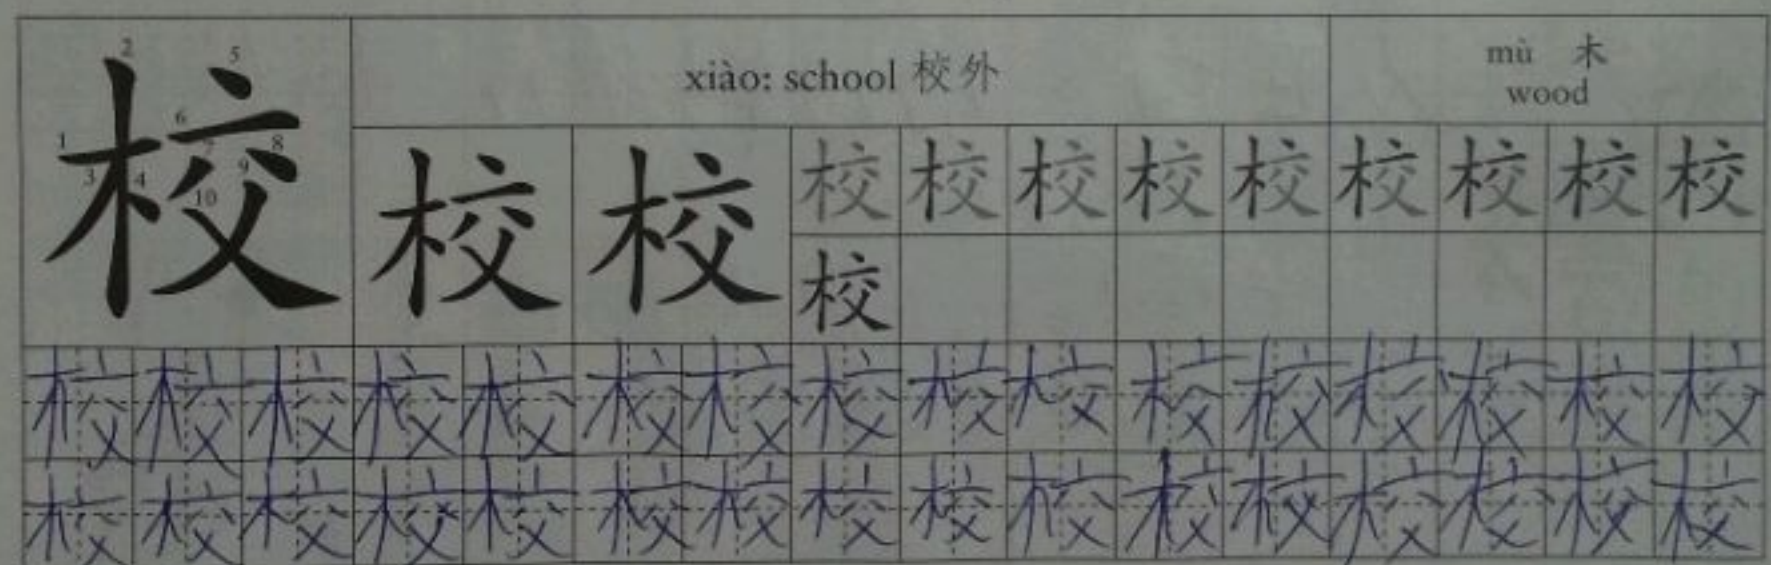 校 1 2 3 4 5 6 7 8 9 10
xiào: school 校外
mù 木
wood
校 校 校 校 校 校 校 校 校 校 校
校
校 校 校 校 校 校 校 校 校 校 校 校 校 校 校 校
校 校 校 校 校 校 校 校 校 校 校 校 校 校 校 校